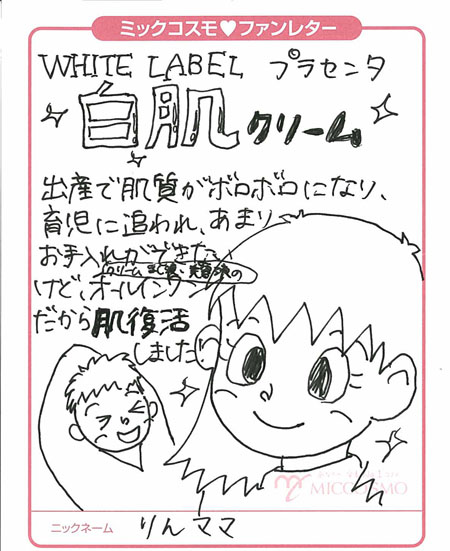 ミックコスモ♥ファンレター
WHITE LABEL プラセンタ
白肌クリーム
出産で肌質がボロボロになり、
育児に追われ、あまり
お手入れができない
けど、オールインワン
だから肌復活
しました!
MICCOSMO
ニックネーム
りんママ